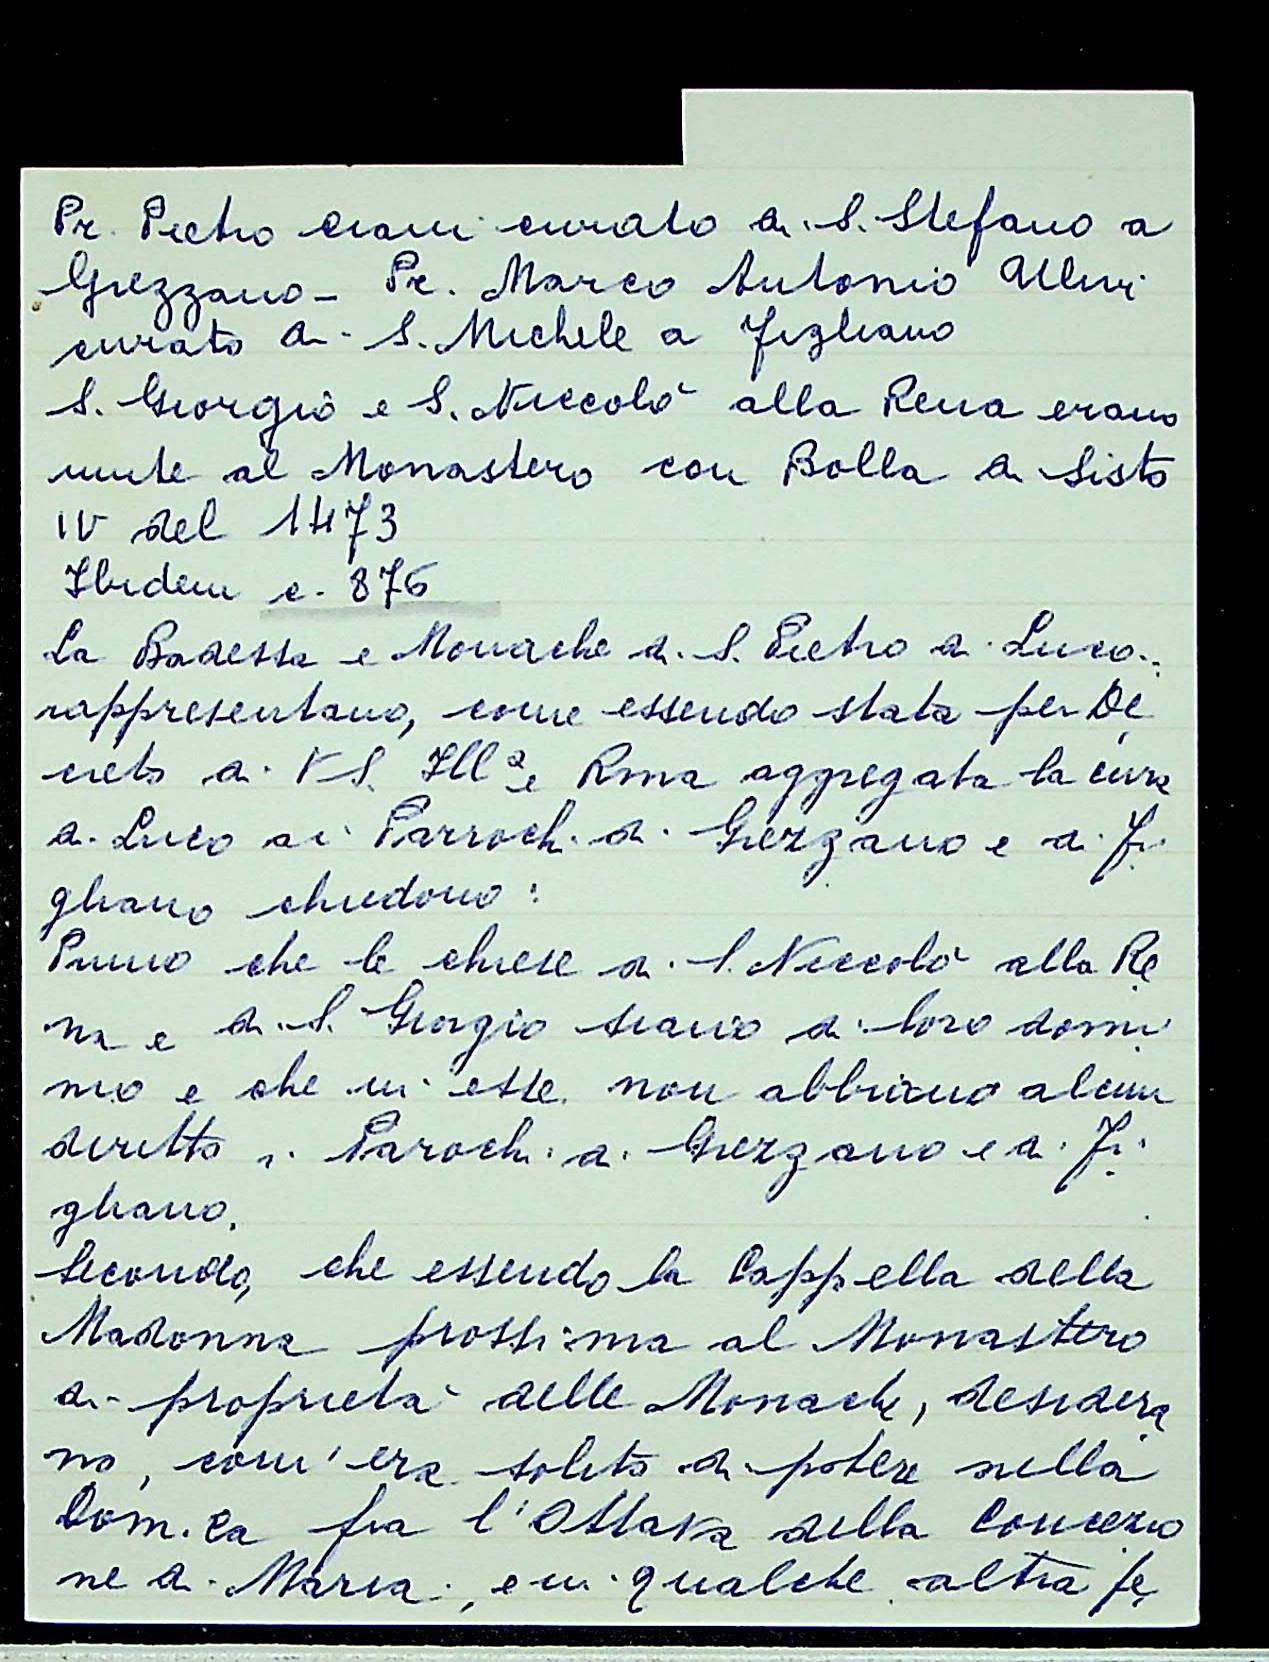 Pr. Pietro Ciani curato di S. Stefano a
Grezzano - Pr. Marco Antonio Ulivi
curato di S. Michele a Figliano
S. Giorgio e S. Niccolò alla Rena erano
unite al Monastero con Bolla di Sisto
IV del 1473
Ibidem c. 876
La Badessa e Monache di S. Pietro di Luco
rappresentano, come essendo stata per De
creto di V S. Illa e Rma aggregata la cura
di Luco ai Parrochi di Grezzano e di Fi
gliano chiedono:
Primo che le chiese di S. Niccolò alla Re
na e di S. Giorgio siano di loro domi
nio e che in esse non abbiano alcun
diritto i Parochi di Grezzano e di Fi
gliano.
Secondo, che essendo la Cappella della
Madonna prossima al Monastero
di proprietà delle Monache, desidera
no, com'era solito di potere nella
Dom.ca fra l'Ottava della Concezio
ne di Maria, e in qualche altra fe